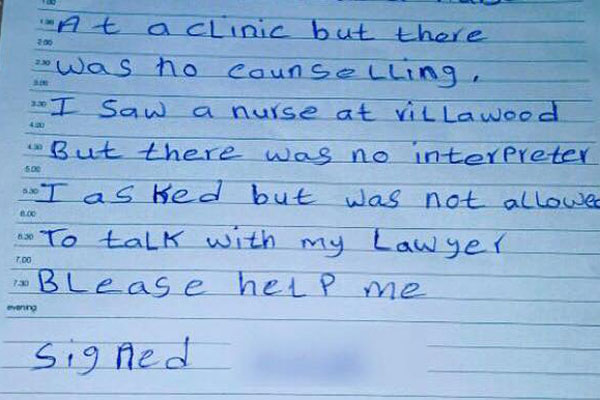 1.30 At a clinic but there
2.00
2.30 was no counselling.
3.00
3.30 I saw a nurse at villawood
4.00
4.30 But there was no interpreter
5.00
5.30 I asked but was not allowed
6.00
6.30 To talk with my Lawyer
7.00
7.30 BLease help me
evening
signed